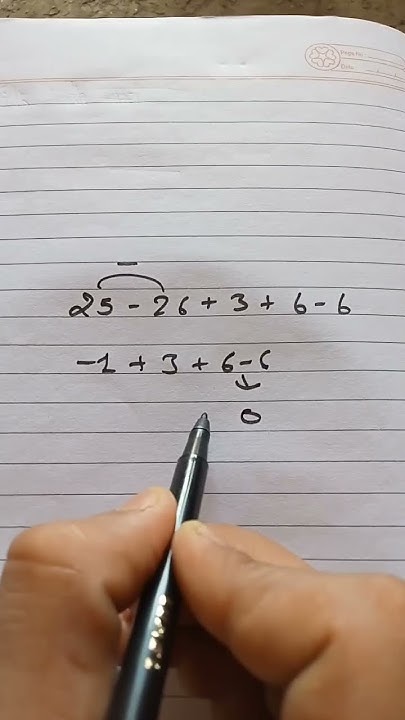 Page No.
Date
25 - 26 + 3 + 6 - 6
-1 + 3 + 6 - 6
0